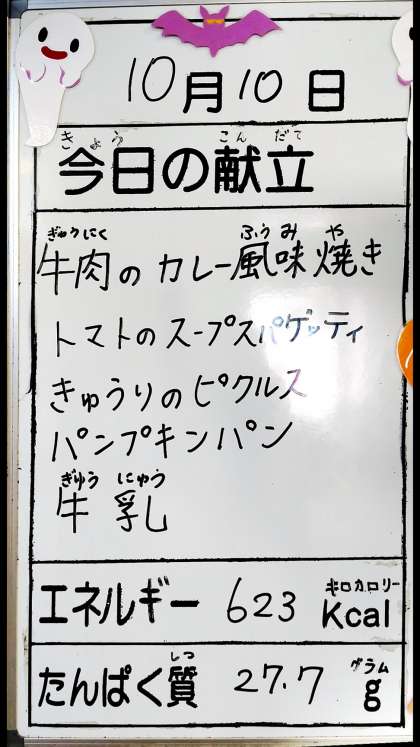 10月10日
きょう こんだて
今日の献立
ぎゅうにく ふうみ や
牛肉のカレー風味焼き
トマトのスープスパゲッティ
きゅうりのピクルス
パンプキンパン
ぎゅうにゅう
牛乳
キロカロリー
エネルギー 623 Kcal
しつ グラム
たんぱく質 27.7 g